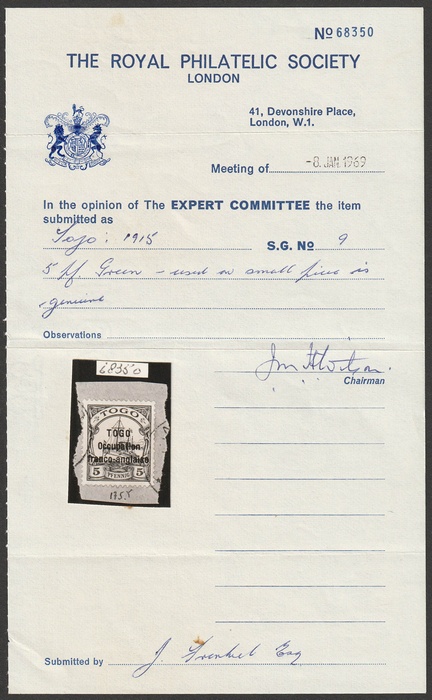 No 68350
THE ROYAL PHILATELIC SOCIETY
LONDON
41, Devonshire Place,
London, W.1.
Meeting of -8. JAN. 1969
In the opinion of The EXPERT COMMITTEE the item
submitted as
Togo: 1915 S.G. No 9
5 pf. Green - used on small piece is
genuine
Observations
Chairman
68350
TOGO
TOGO
Occupation
franco-anglaise
5 PFENNIG 5
Submitted by J. Frenkel Esq